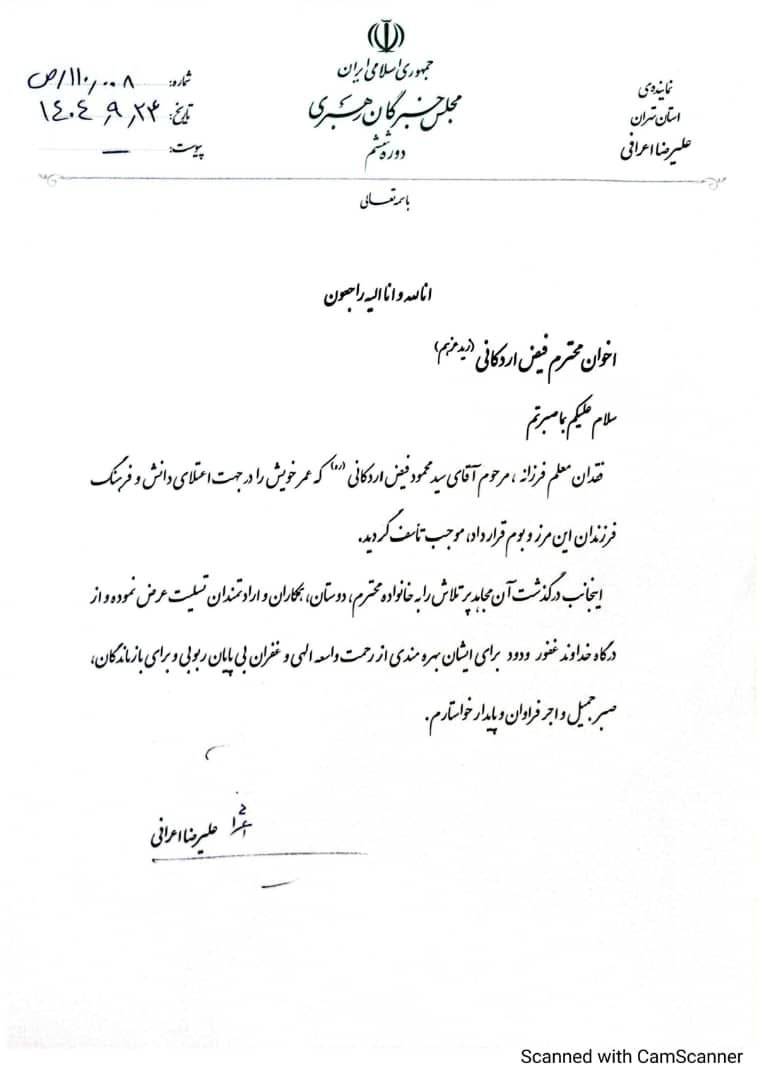 جمهوری اسلامی ایران
مجلس خبرگان رهبری
دوره ششم
نماینده‌ی
استان تهران
علیرضا اعرافی
شماره: ۱۱۰,۰۰۸/ص
تاریخ: ۱۴۰۴,۹,۲۳
پیوست: —
باسمه تعالی
انا لله و انا الیه راجعون
اخوان محترم فیض اردکانی (زید عزهم)
سلام علیکم بما صبرتم
فقدان معلم فرزانه، مرحوم آقای سید محمود فیض اردکانی (ره) که عمر خویش را در جهت اعتلای دانش و فرهنگ
فرزندان این مرز و بوم قرار داد، موجب تأسف گردید.
اینجانب درگذشت آن مجاهد پر تلاش را به خانواده محترم، دوستان، همکاران و ارادتمندان تسلیت عرض نموده و از
درگاه خداوند غفور ودود برای ایشان بهره مندی از رحمت واسعه الهی و غفران بی پایان ربوبی و برای بازماندگان،
صبر جمیل و اجر فراوان و پایدار خواستارم.
علیرضا اعرافی
Scanned with CamScanner